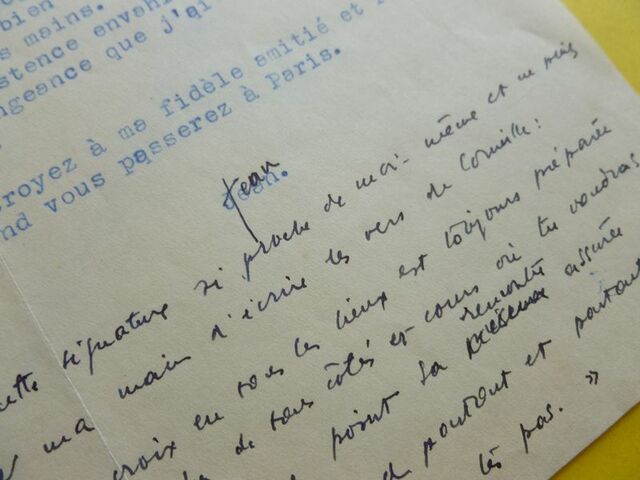 bien
s mains.
stence envahi
ngeance que j'ai
royez à ma fidèle amitié et
nd vous passerez à Paris.
Jean
Jean.
ette signature si proche de moi-même et ne puis
ma main d'écrire les vers de Corneille:
croix en tous les lieux est toujours préparée
de tous côtés et cours où tu voudras
rencontre
point sa assurée
partout et partout
tes pas. »